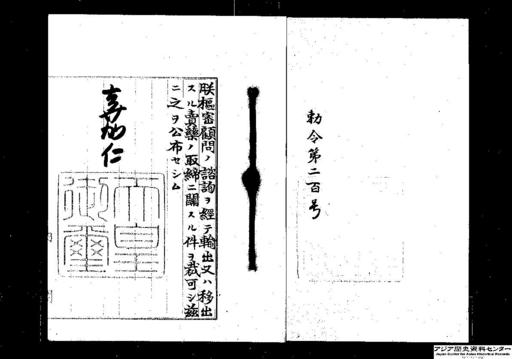 勅令第二百号
朕樞密顧問ノ諮詢ヲ経テ輸出又ハ移出
スル賣藥ノ取締ニ關スル件ヲ裁可シ茲
ニ之ヲ公布セシム
嘉仁
天皇
御璽
アジア歴史資料センター
Japan Center for Asian Historical Records